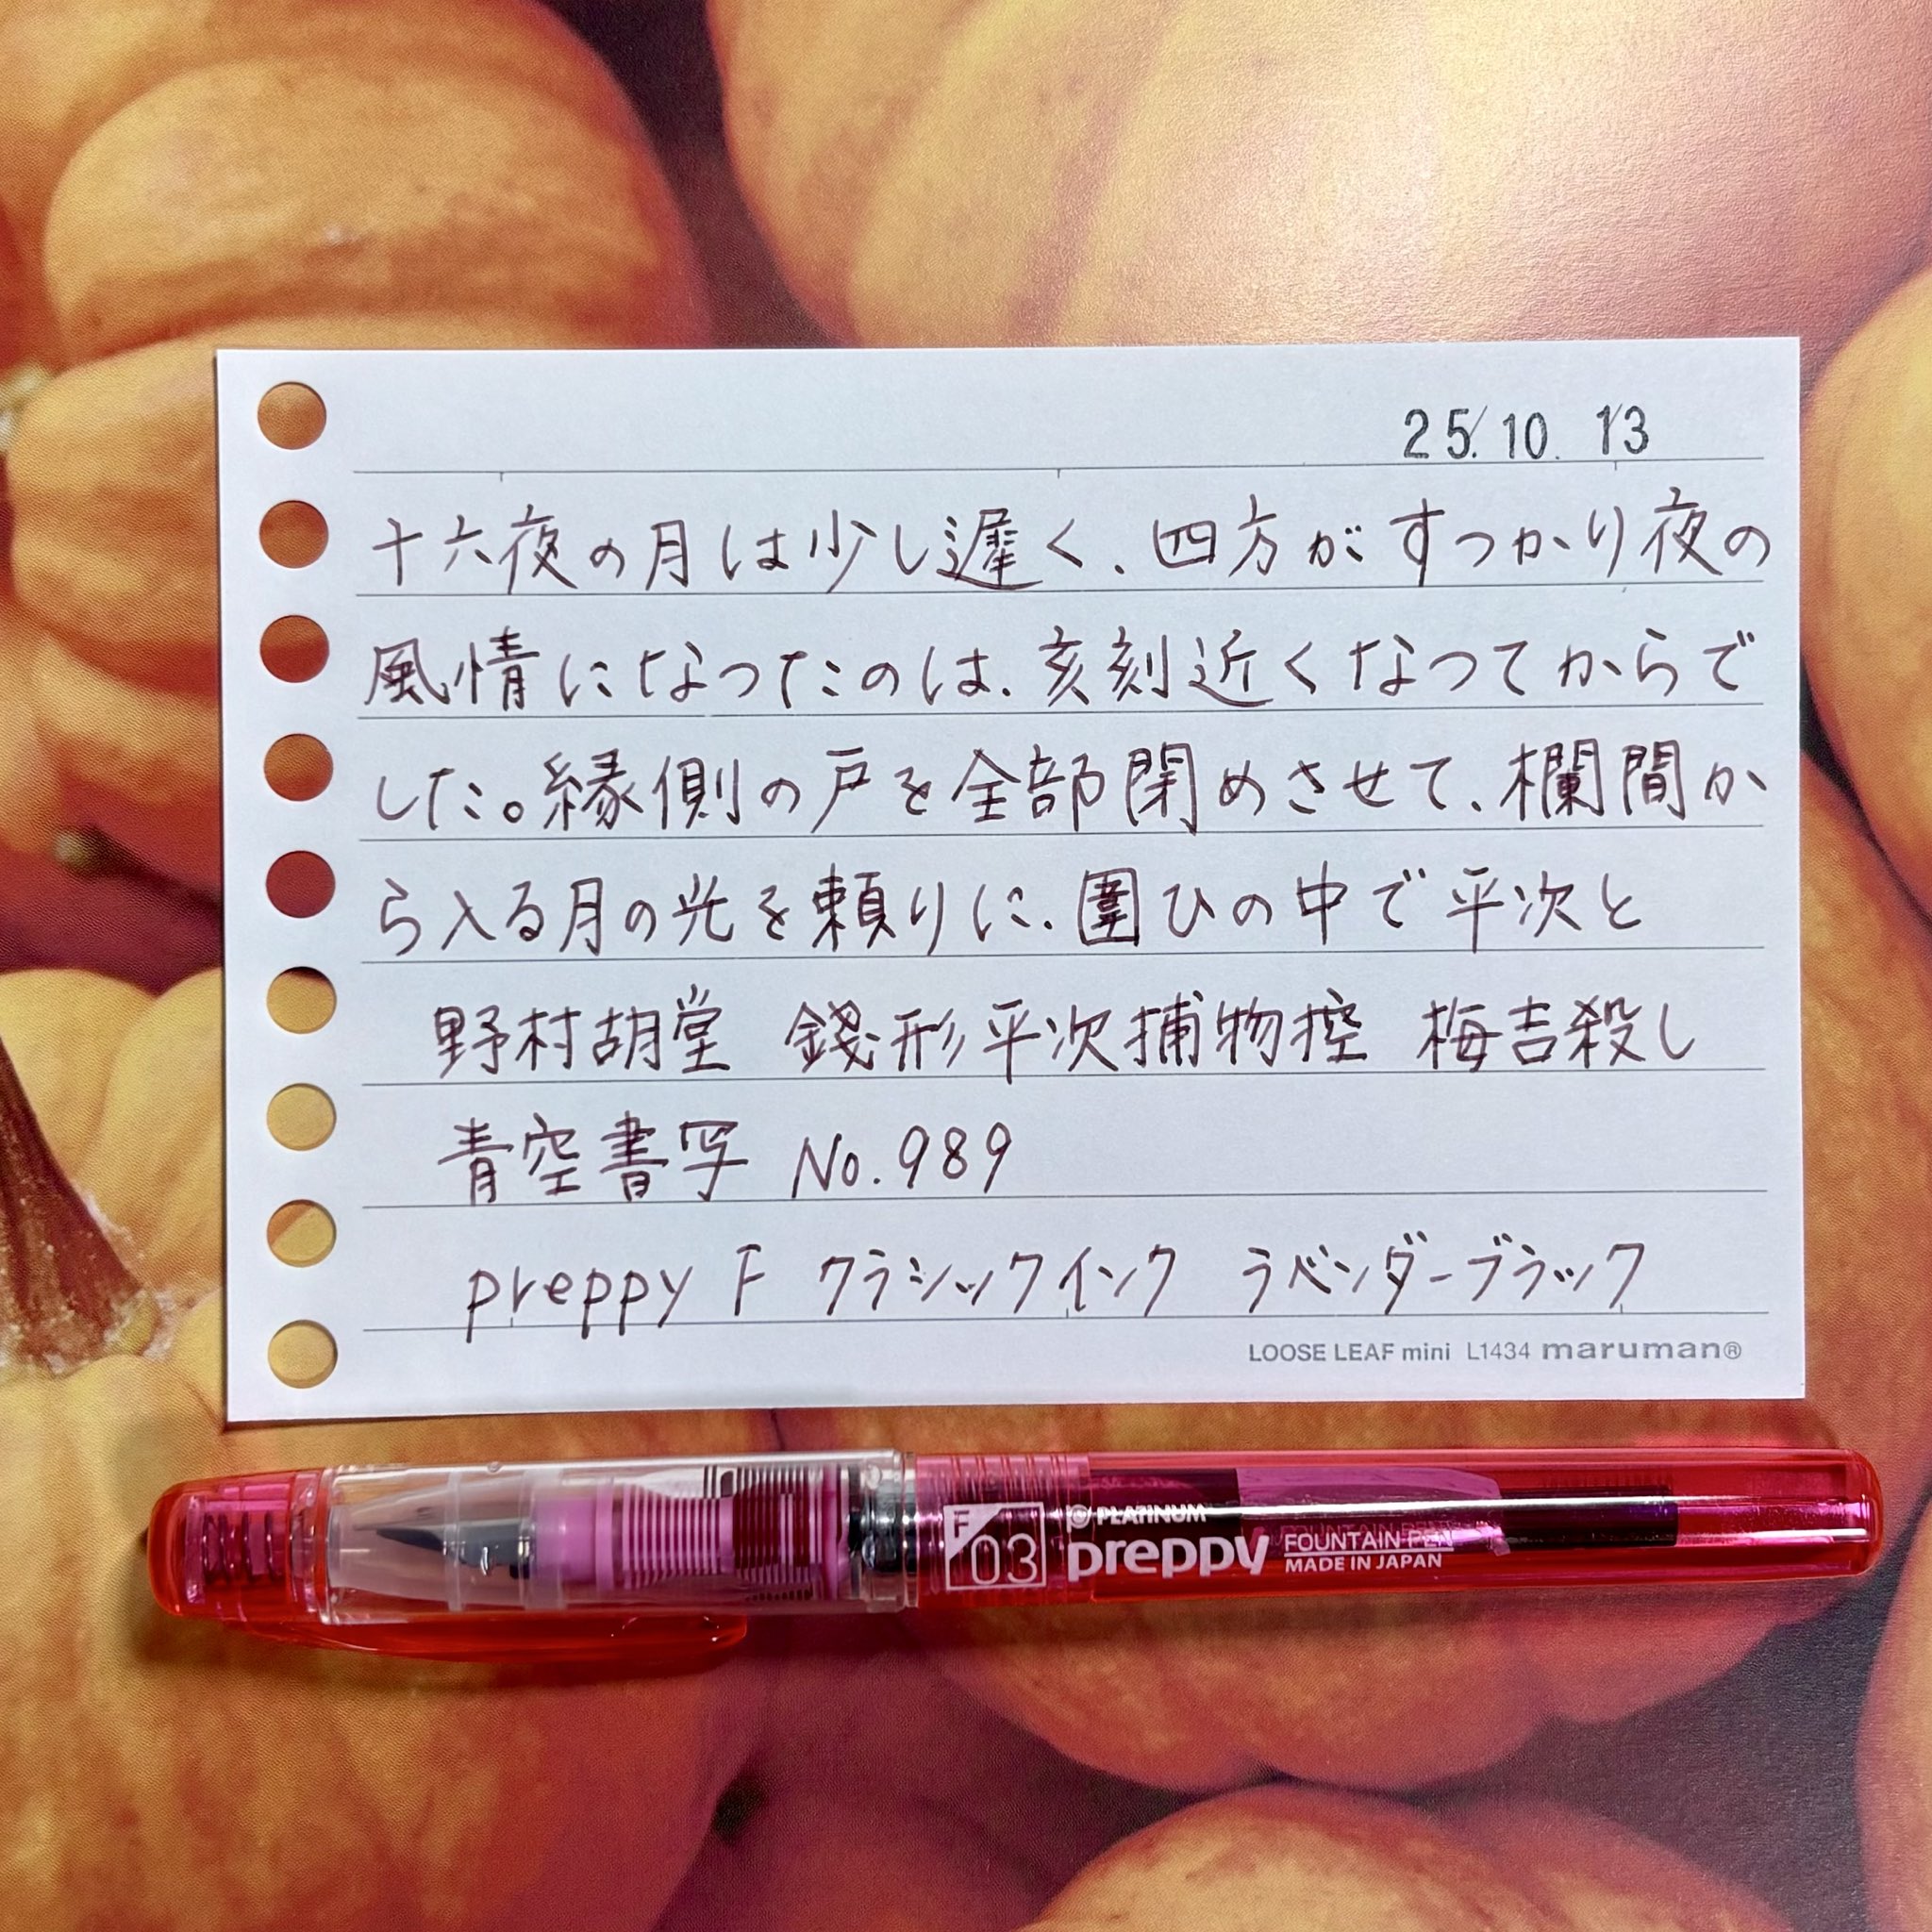 25.10.13
十六夜の月は少し遲く、四方がすつかり夜の
風情になつたのは、亥刻近くなつてからで
した。縁側の戸を全部閉めさせて、欄間か
ら入る月の光を頼りに、圍ひの中で平次と
野村胡堂 錢形平次捕物控 梅吉殺し
青空書写 No.989
preppy F クラシックインク ラベンダーブラック
LOOSE LEAF mini L1434 maruman®
F 03 PLATINUM preppy FOUNTAIN PEN
MADE IN JAPAN